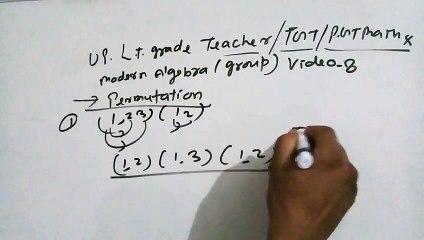 UP. L.T. grade Teacher/TGT/P.GT math
modern Algebra (group) Video-8
→ Permutation
① (1 2 3) (1 2)
(1 2) (1 3) (1 2)